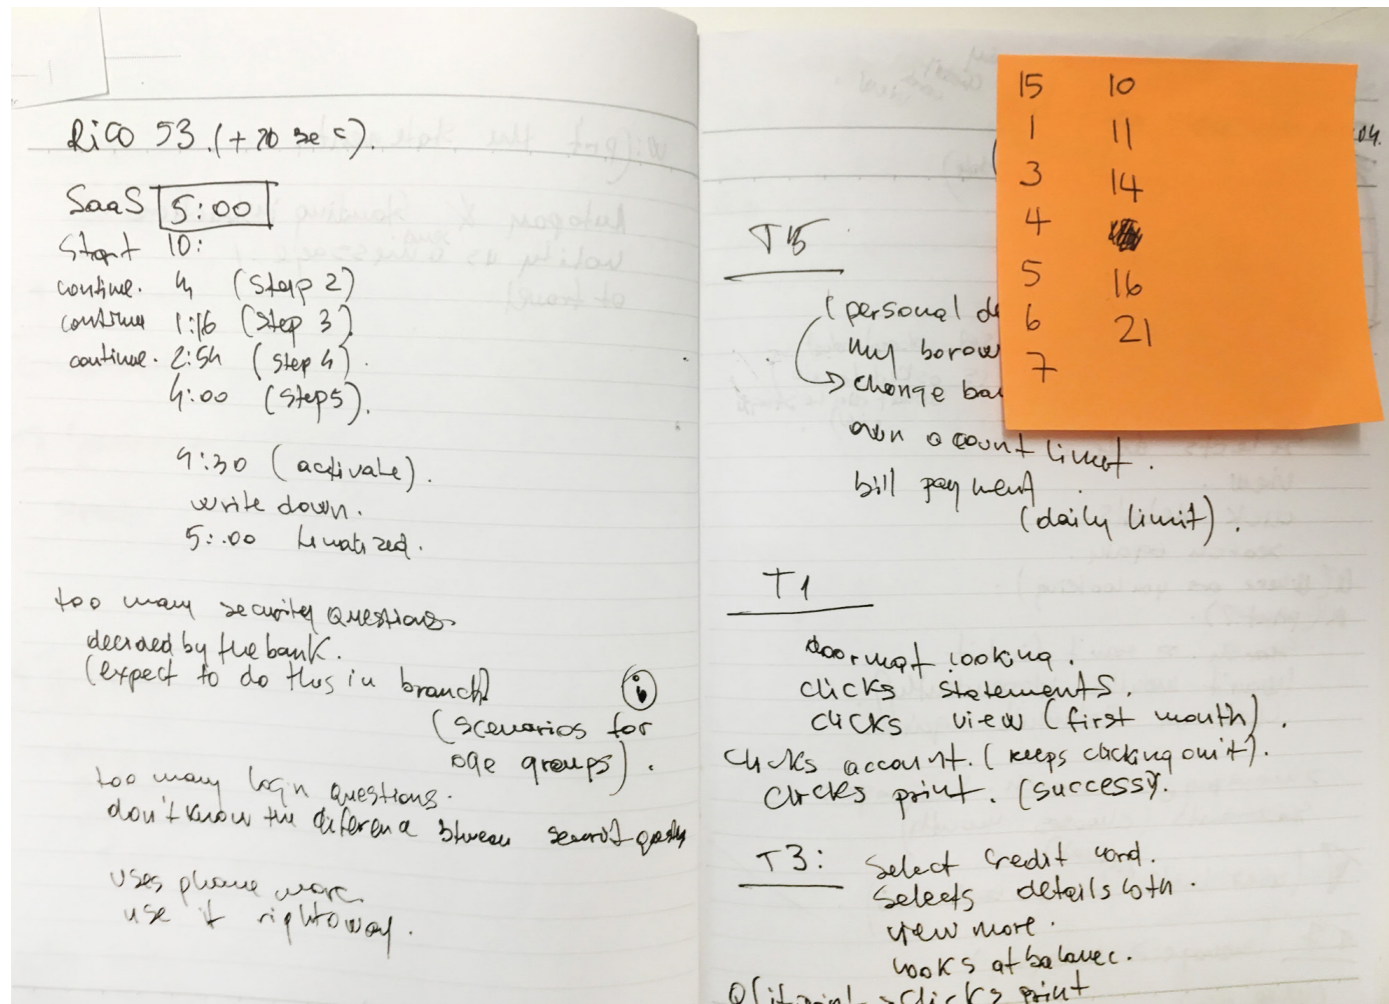 Rico 53. (+ 20 sec).
SaaS 5:00
Start 10:
continue. 4 (Step 2)
continue 1:16 (Step 3)
continue. 2:54 (Step 4).
4:00 (Step5).
4:30 (activate).
write down.
5:00
too many security questions
decided by the bank.
(expect to do this in branch)
(scenarios for
age groups).
too many login questions.
don't know the diference btween
uses phone more
use it rightaway.
15 10
1 11
3 14
4
5 16
6 21
7
T5
(personal de
my borow
change ba
own account limit.
bill payment
(daily limit).
T1
looking.
clicks statements.
clicks view (first month).
clicks account. (keeps clicking on it).
clicks print. (success).
T3: Select Credit card.
Selects details
view more.
looks at balance.
clicks print